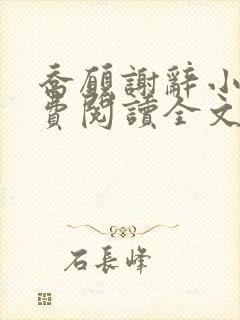 喬願謝辭小
費閱讀全文
石長峰